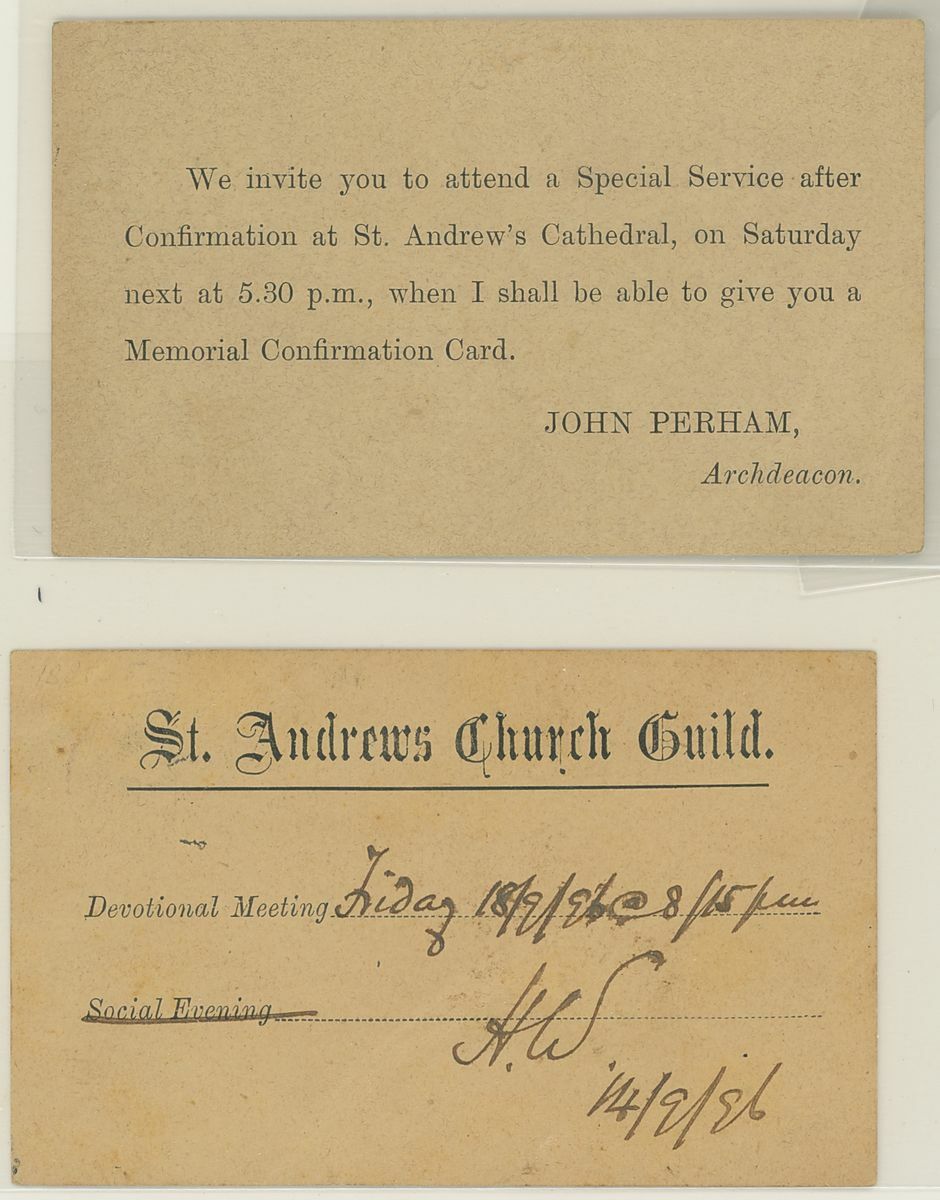 We invite you to attend a Special Service after
Confirmation at St. Andrew's Cathedral, on Saturday
next at 5.30 p.m., when I shall be able to give you a
Memorial Confirmation Card.
JOHN PERHAM,
Archdeacon.
St. Andrews Church Guild.
Devotional Meeting Friday 18/9/96 @ 8/15/pm
Social Evening
H.W.
14/9/96